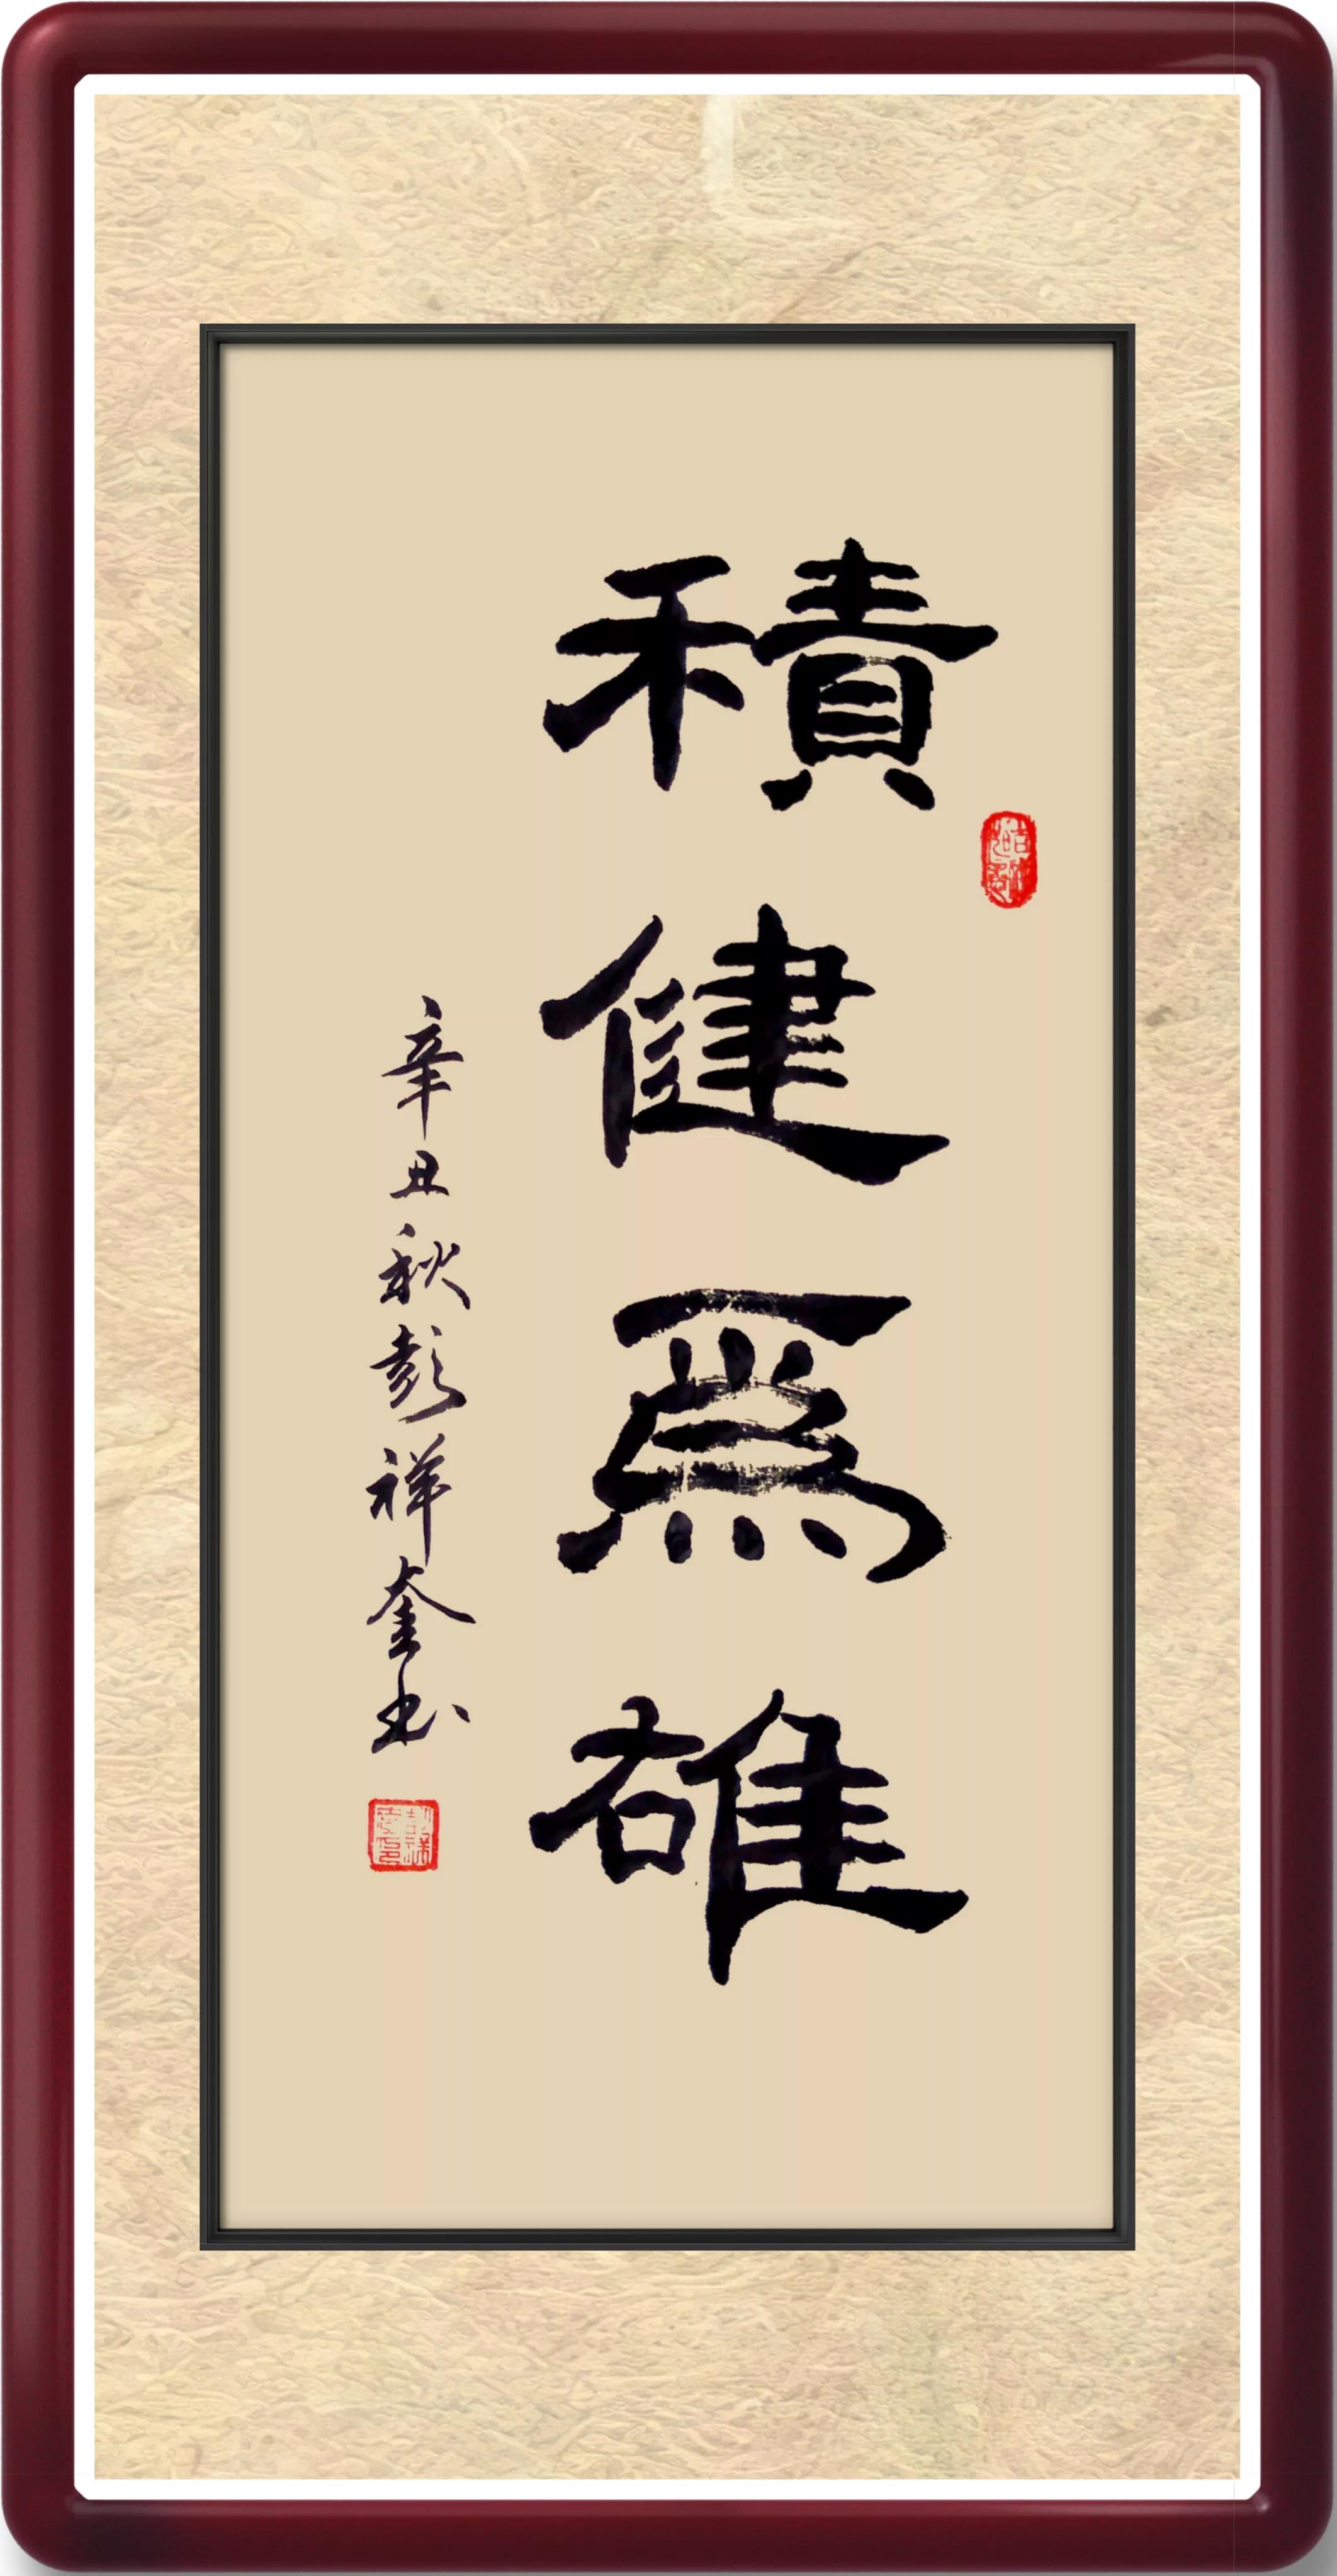 積健為雄
辛丑秋彭祥奎书